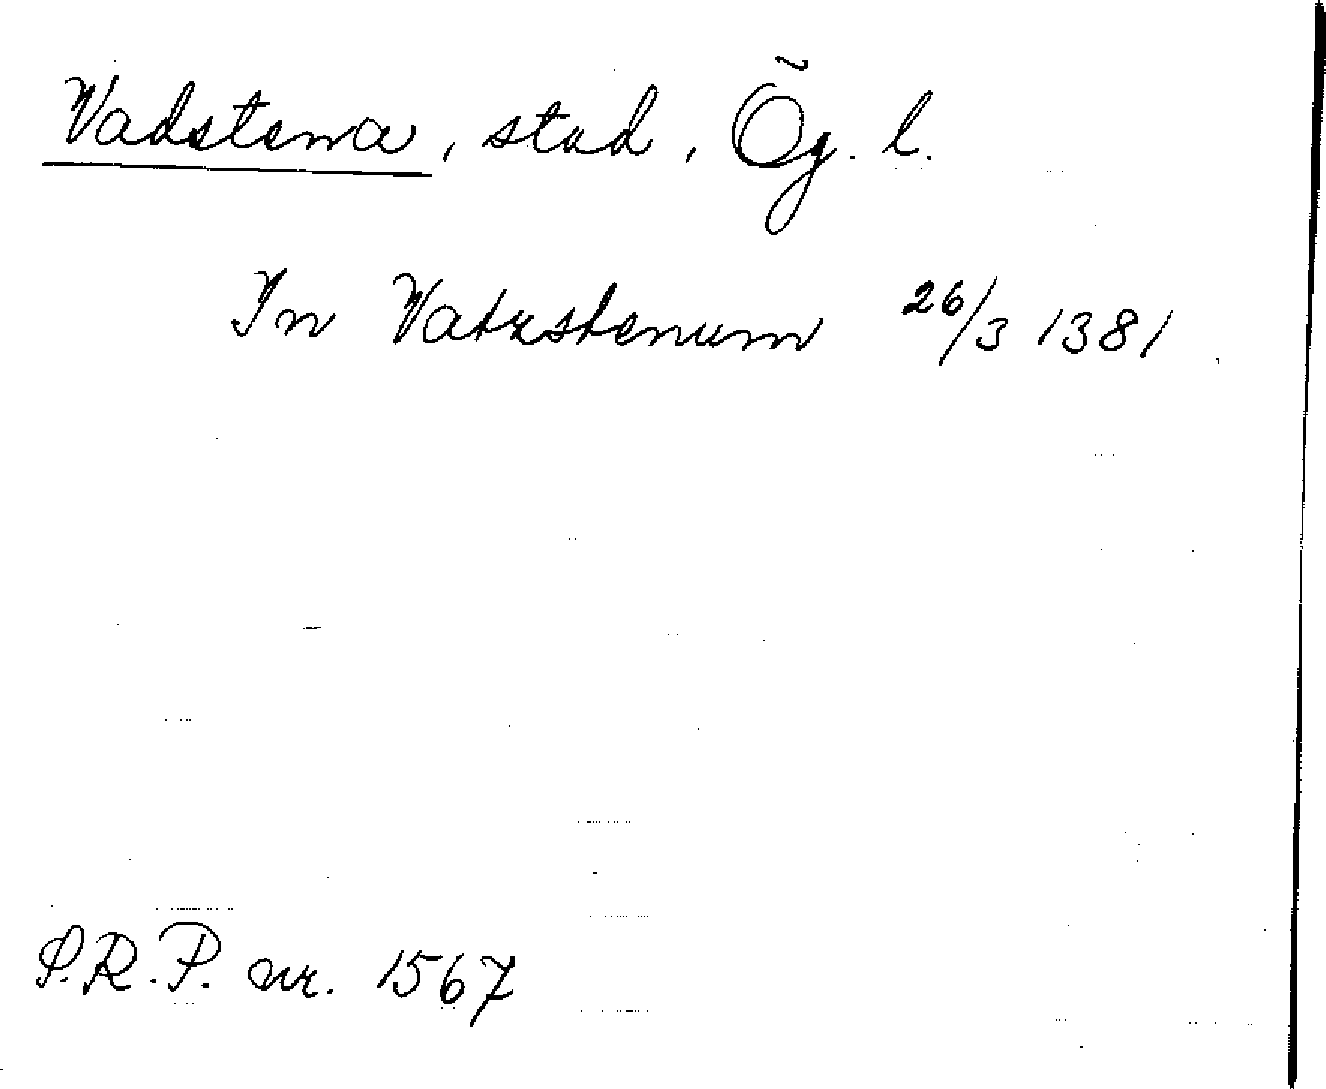 Vadstena, stad, Ög. l.
In Vatzstenum 26/3 1381
S.R.P. nr. 1567